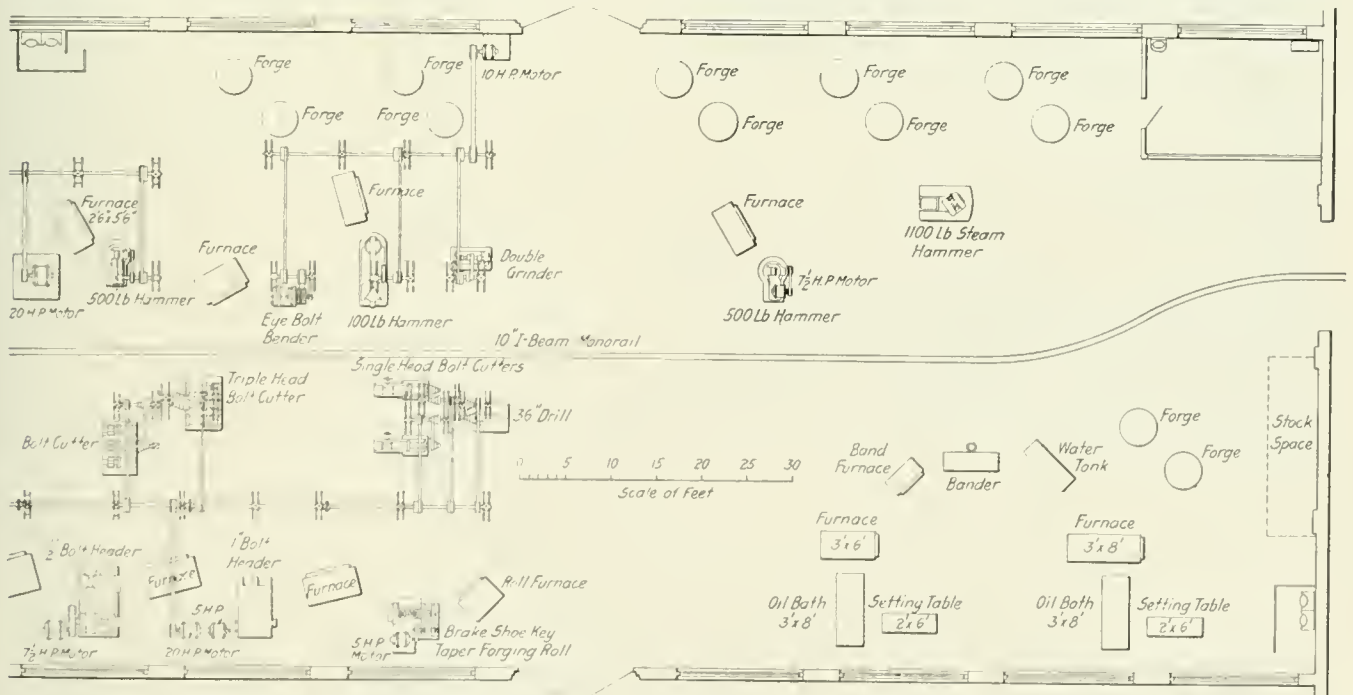 Forge
Forge
10 H.P. Motor
Forge
Forge
Forge
Forge
Forge
Forge
Forge
Forge
Forge
Furnace
2'6"x5'6"
Furnace
Furnace
1100 Lb Steam
Hammer
Furnace
Double
Grinder
7½ H.P Motor
20 H.P Motor
500 Lb Hammer
Eye Bolt
Bender
100 Lb Hammer
500 Lb Hammer
10" I-Beam Monorail
Single Head Bolt Cutters
Triple Head
Bolt Cutter
36" Drill
Bolt Cutter
0 5 10 15 20 25 30
Scale of Feet
Band
Furnace
Bander
Water
Tank
Forge
Forge
Stock
Space
Furnace
3'x 6'
Furnace
3'x 8'
Bolt Header
1" Bolt
Header
Furnace
Furnace
Roll Furnace
Oil Bath
3'x 8'
Setting Table
2'x 6'
Oil Bath
3'x 8'
Setting Table
2'x 6'
5 H.P
7½ H.P Motor
20 H.P Motor
5 H.P
Motor
Brake Shoe Key
Taper Forging Roll